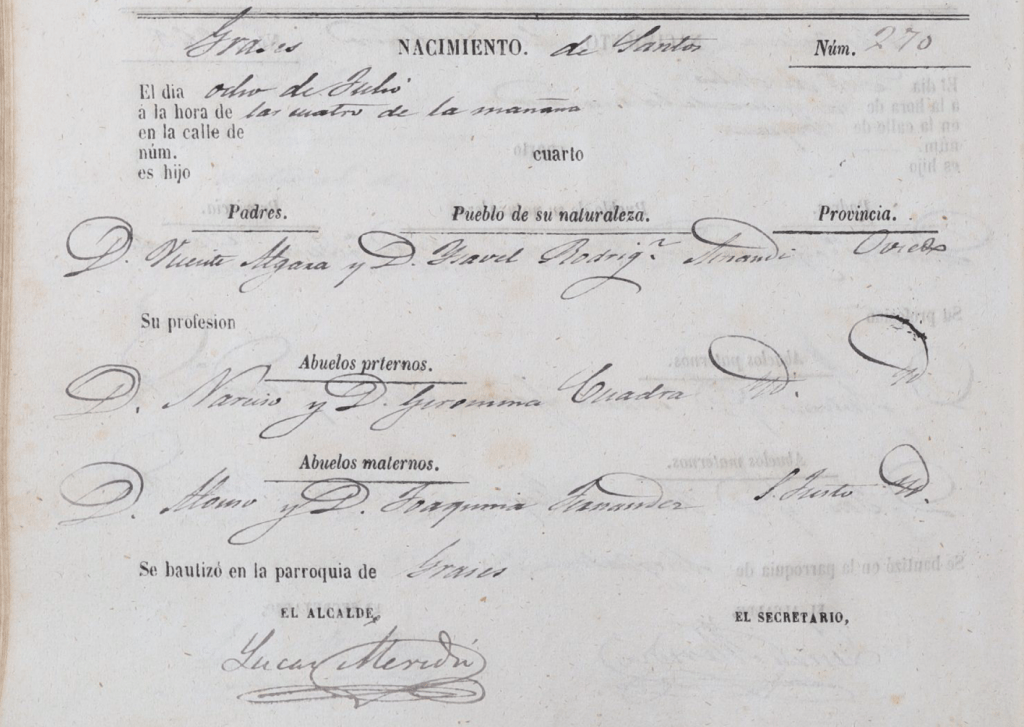 Grases NACIMIENTO. de Santos Núm. 270
El dia ocho de Julio
á la hora de las cuatro de la mañana
en la calle de
núm. cuarto
es hijo
Padres. Pueblo de su naturaleza. Provincia.
D. Vicente Algara y D. Ysavel Rodrigr. Oviedo
Su profesion
Abuelos prternos.
D. Narciso y D. Geronima Cuadra Yd. Yd.
Abuelos maternos.
D. Alonso y D. Joaquina Fernandez S. Justo Yd.
Se bautizó en la parroquia de Grases
EL ALCALDE, EL SECRETARIO,
Lucas